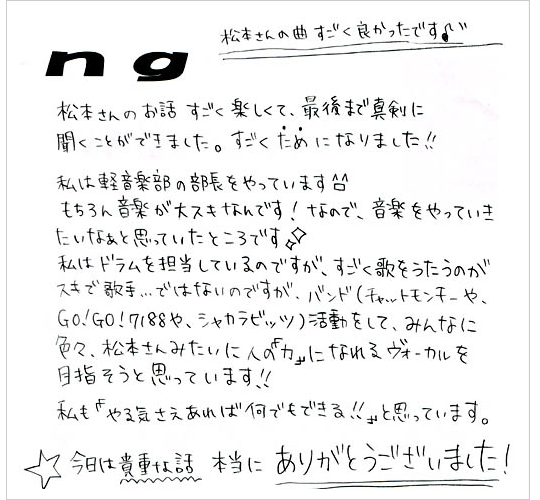 松本さんの曲すごく良かったです♪
ng
松本さんのお話すごく楽しくて、最後まで真剣に
聞くことができました。すごくために なりました!!
私は軽音楽部の部長をやっています^^
もちろん音楽が大スキなんです!なので、音楽をやっていき
たいなあと思っていたところです
私はドラムを担当しているのですが、すごく歌をうたうのが
スキで歌手…ではないのですが、バンド(チャットモンチーや、
GO!GO!7188や、シャカラビッツ)活動をして、みんなに
色々、松本さんみたいに人の『力』になれるヴォーカルを
目指そうと思っています!!
私も『やる気さえあれば何でもできる!!』と思っています。
☆今日は貴重な話 本当に ありがとうございました!